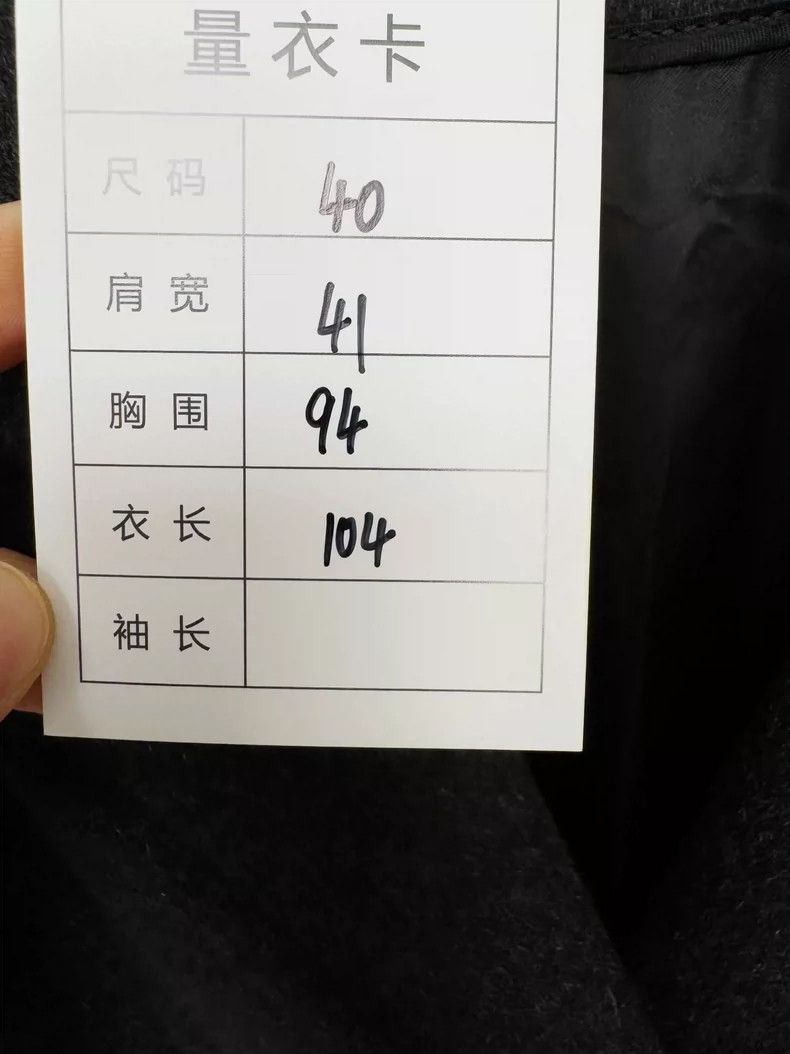 量衣卡
尺码 40
肩宽 41
胸围 94
衣长 104
袖长